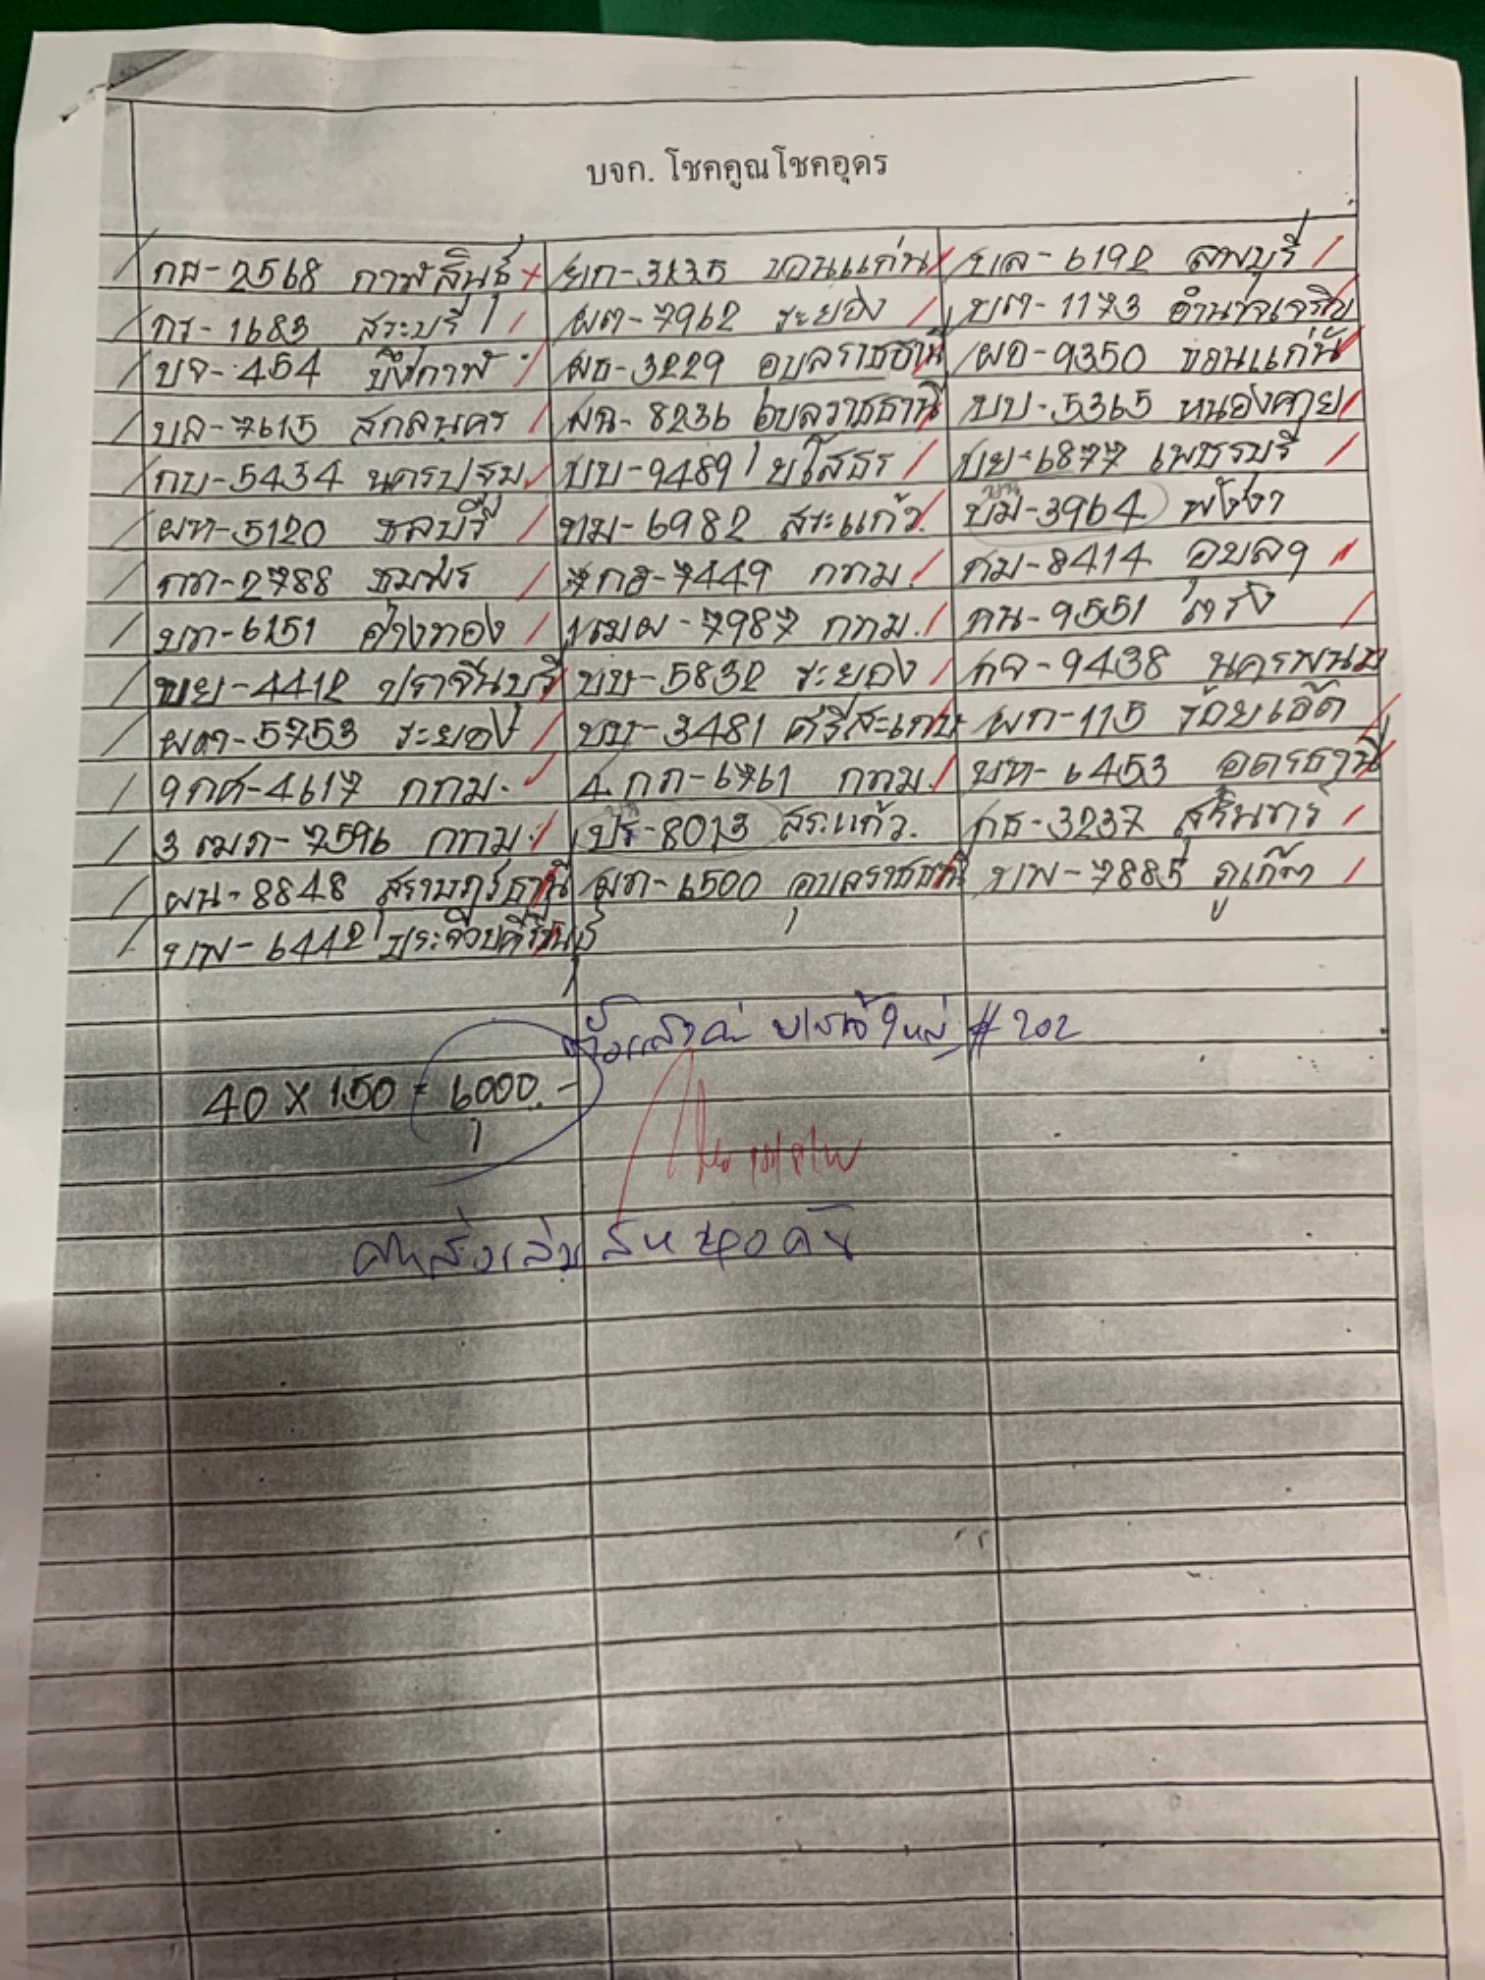 บจก. โชคคูณโชคอุดร
กส-2568 กาฬสินธุ์ ยก-3235 ขอนแก่น บล-6192 ลพบุรี
กร-1683 สระบุรี ผต-7962 ระยอง บต-1173 อำนาจเจริญ
บจ-454 บึงกาฬ ผธ-3229 อุบลราชธานี ผอ-9350 ขอนแก่น
บล-7615 สกลนคร ผน-8236 อุบลราชธานี บบ-5365 หนองคาย
กบ-5434 นครปฐม บบ-9489 ยโสธร บย-6877 เพชรบุรี
ผท-5120 ชลบุรี บม-6982 สระแก้ว บม-3964 พังงา
กท-2788 ชุมพร 7กอ-7449 กทม. กม-8414 อุบลฯ
บท-6151 อ่างทอง 1ฒผ-7987 กทม. กน-9551 ตรัง
ขย-4412 ปราจีนบุรี บบ-5832 ระยอง กจ-9438 นครพนม
ผต-5753 ระยอง บบ-3481 ศรีสะเกษ ผก-115 ร้อยเอ็ด
9กศ-4617 กทม. 4กก-6761 กทม. บท-6453 อุดรธานี
3ฒภ-7596 กทม. บร-8013 สระแก้ว. กธ-3237 สุรินทร์
ผน-8848 สุราษฎร์ธานี มท-6500 อุบลราชธานี บพ-7885 ภูเก็ต
บพ-6442 ประจวบคีรีขันธ์
ใหม่ # 202
40 X 150 = 6000.-